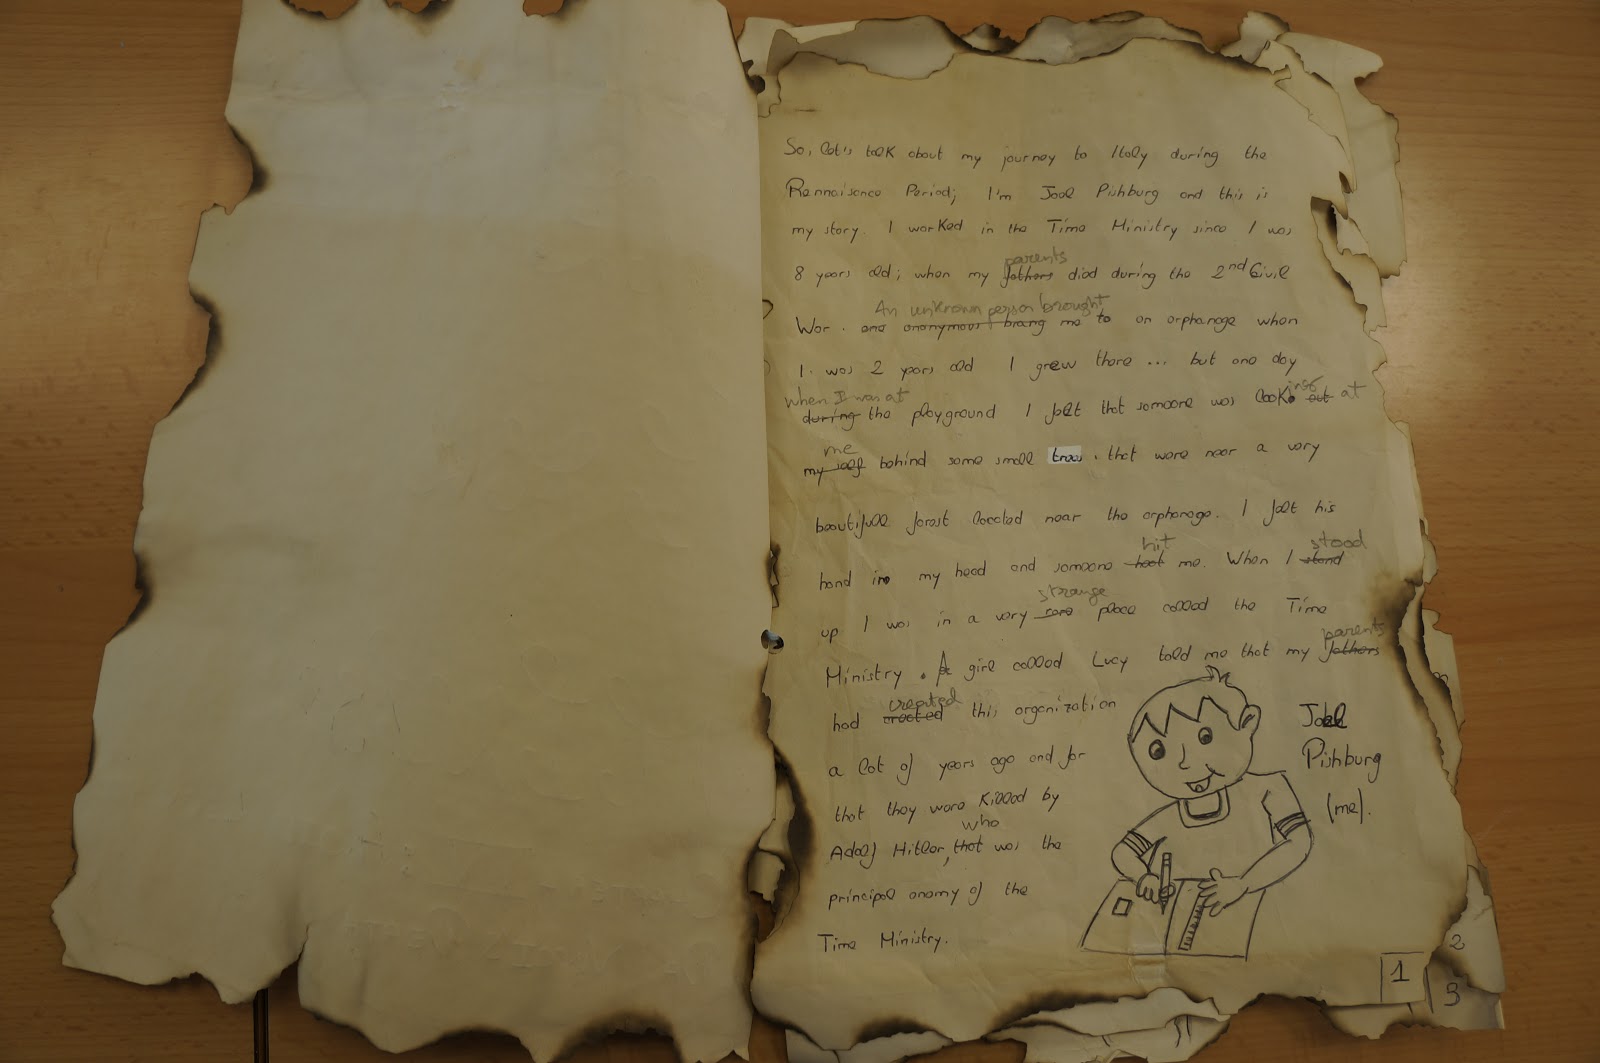 So, let's talk about my journey to Italy during the
Rennaisance Period; I'm Joel Pishburg and this is
my story. I worked in the Time Ministry since I was
parents
8 years old; when my fathers died during the 2nd Civil
An unknown person brought
War. and anonymous brang me to an orphanage when
I. was 2 years old I grew there ... but one day
when I was at ing
during the playground I felt that someone was look out at
me
my self behind some small trees. that were near a very
beautifull forest located near the orphanage. I felt his
hit stood
hand in my head and someone heet me. When I stand
strange
up I was in a very rare place called the Time
parents
Ministry. A girl called Lucy told me that my fathers
created
had created this organization
a lot of years ago and for
that they were killed by
who
Adolf Hitler, that was the
principal enemy of the
Time Ministry.
Joel
Pishburg
(me).
1
2
3